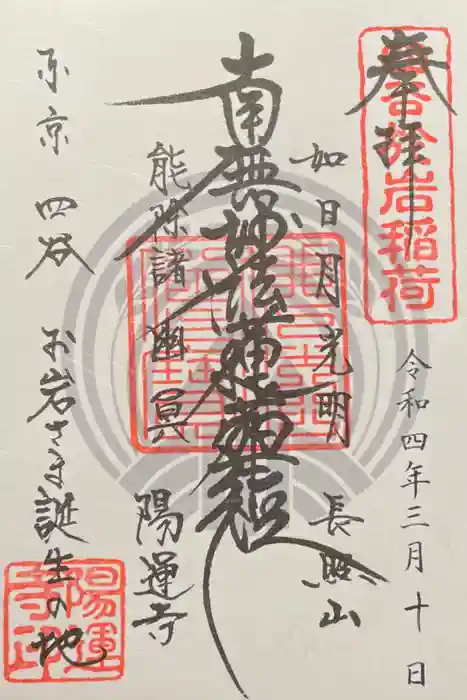 奉拝
岩稲荷
令和四年三月十日
如日月光明
長照山
南無妙法蓮華経
能除諸幽冥
陽運寺
東京 四谷 お岩さま誕生の地
陽運寺印